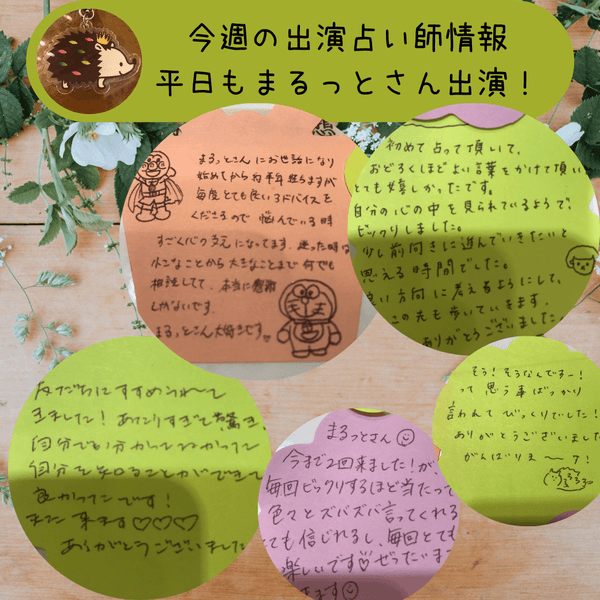 今週の出演占い師情報
平日もまるっとさん出演！
まるっとさんにお世話になり
始めてから約半年経ちますが
毎度とても良いアドバイスを
くださるので 悩んでいる時
すごく心の支えになってます。迷った時は
小さなことから大きなことまで何でも
相談してて、本当に感謝
しかないです。
まるっとさん大好きです。
初めて占って頂いて、
おどろくほどよい言葉をかけて頂い
とても嬉しかったです。
自分の心の中を見られているようで、
ビックリしました。
少し前向きに進んでいきたいと
思える時間でした。
良い方向に考えるようにして、
この先も歩いていきます。
ありがとうございました
友だちにすすめられて
きました！あたりすぎて驚き、
自分でも分かってなかった
自分を知ることができて
良かったです！
また来ます♡♡♡
ありがとうございました
まるっとさん
今まで2回来ました！が、
毎回ビックリするほど当たって
色々とズバズバ言ってくれる
とても信じれるし、毎回とても
楽しいです♡ぜったいま
きます
そう！そうなんでるー！
って思う事ばっかり
言われてびっくりでした！
ありがとうございました
がんばりえ〜す！